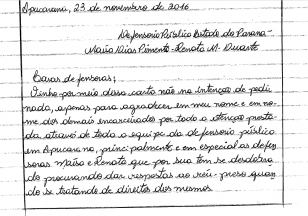 Apucarana, 23 de novembro de 2016
Defensoria Pública Estado do Paraná-
Mario Dias Pimenta-Renata M. Duarte
Caras defensoras;
Venho por meio dessa carta não na intenção de pedi
nada, apenas para agradecer em meu nome e em no-
me dos demais encarcerados por toda a atenção presta-
da através de toda a equipe da defensoria pública
em Apucarana, principalmente e em especial as defen
soras Maíra e Renata que por sua vez se desdobra
do procurando dar respostas ao réu-preso quan
do se tratando de direito dos mesmos.